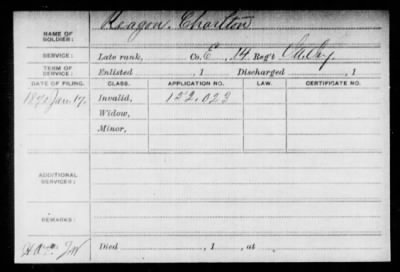 NAME OF SOLDIER: Reagon, Charlton
SERVICE: Late rank, Co. E, 14 Reg't Pa. Cav.
TERM OF SERVICE: Enlisted , 1 Discharged , 1
DATE OF FILING. CLASS. APPLICATION NO. LAW. CERTIFICATE NO.
1870 Jan. 17. Invalid, 152,023
Widow,
Minor,
ADDITIONAL SERVICES:
REMARKS:
Died , 1 , at